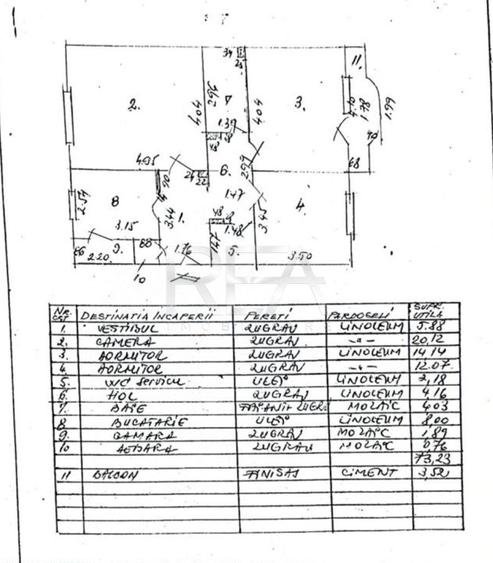 34
25
11.
2.
2.96
4.04
7
1.39
48
4.04
3.
4.10
1.78
1.99
40
68
4.95
6.
2.99
24
22
2.54
8
3.44
1.
1.47
4.
3.15
48
1.48
3.42
66
9.
2.20
68
1.76
1.47
5.
3.50
10
REA
NR. CRT DESTINATIA INCAPERII PERETI PARDOSELI SUPR. UTILA
1. VESTIBUL ZUGRAV LINOLEUM 5.88
2. CAMERA ZUGRAV -"- 20,12
3. DORMITOR ZUGRAV LINOLEUM 14,14
4. DORMITOR ZUGRAV -"- 12.07
5. WC serviciu ULEI LINOLEUM 2,18
6 HOL ZUGRAV LINOLEUM 4,16
7. BAIE FAIANTA ZUGRAV MOZAIC 4.03
8 BUCATARIE ULEI LINOLEUM 8,00
9. CAMARA ZUGRAV MOZAIC 1,89
10 AEDARA ZUGRAV MOZAIC 0,76
73,23
11 BALCON FINISAJ CIMENT 3,52